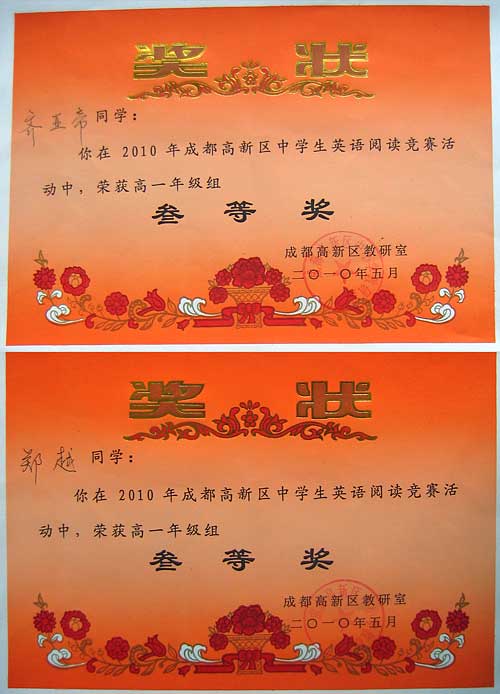 奖 状
齐亚帝同学：
你在 2010 年成都高新区中学生英语阅读竞赛活
动中，荣获高一年级组
叁 等 奖
成都高新区教研室
二〇一〇年五月
奖 状
郑越 同学：
你在 2010 年成都高新区中学生英语阅读竞赛活
动中，荣获高一年级组
叁 等 奖
成都高新区教研室
二〇一〇年五月